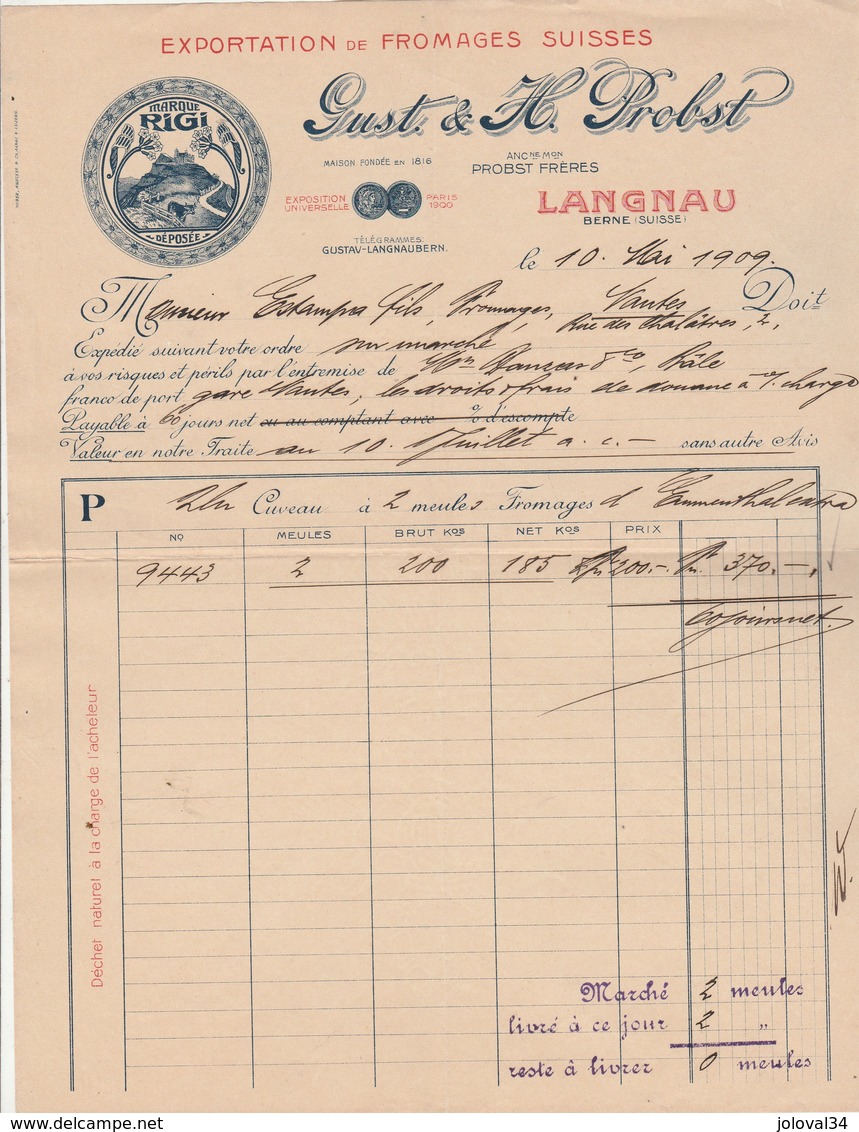 EXPORTATION DE FROMAGES SUISSES
MARQUE
RIGI
DÉPOSÉE
Gust. & H. Probst
MAISON FONDÉE EN 1816
ANCNE MON
PROBST FRÈRES
EXPOSITION
UNIVERSELLE
PARIS
1900
LANGNAU
BERNE (SUISSE)
TÉLÉGRAMMES:
GUSTAV-LANGNAUBERN.
le 10. Mai 1909.
Monsieur Estampes fils, Fromages, Nantes Doit
Rue des Chalâtres, 2,
Expédié suivant votre ordre sur marché
à vos risques et périls par l'entremise de Danzas & Co, Bâle
franco de port gare Nantes, les droits & frais de douane à v. charge
Payable à 60 jours net ou au comptant avec % d'escompte
Valeur en notre Traite au 10. Juillet a. c. — sans autre Avis
P Un Cuveau à 2 meules Fromages d'Emmenthal extra
NO MEULES BRUT KOS NET KOS PRIX
9443 2 200 185 200.- 370.-
60 jours net.
Déchet naturel à la charge de l'acheteur
Marché 2 meules
livré à ce jour 2 "
reste à livrer 0 meules
delcampe.net
joloval34